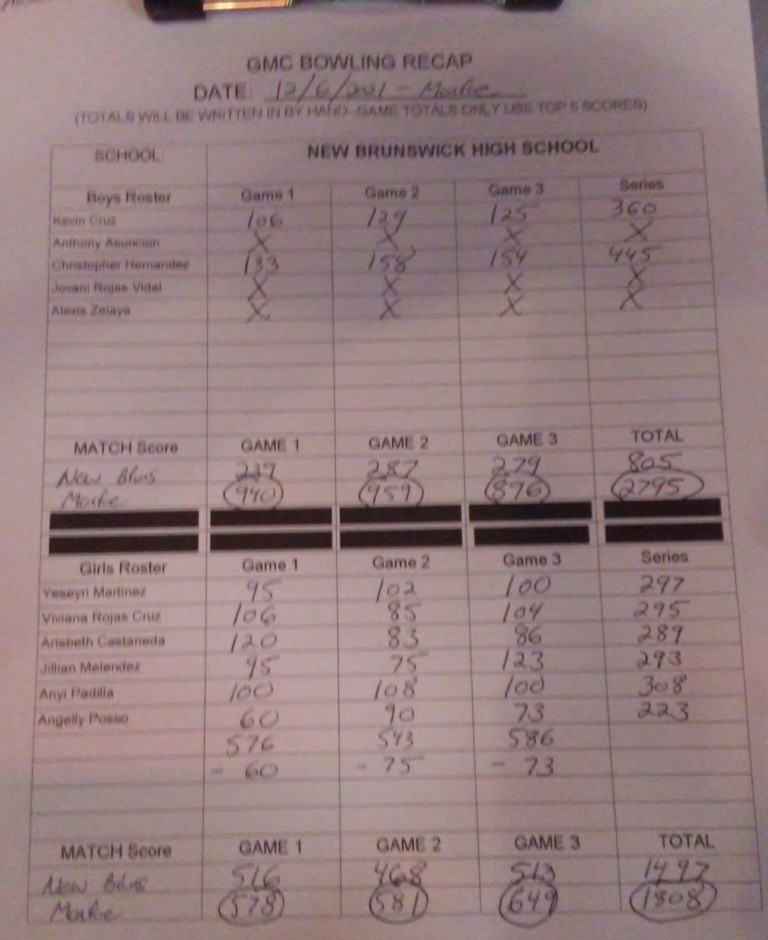 GMC BOWLING RECAP
DATE: 12/6/2021 -
(TOTALS WILL BE WRITTEN IN BY HAND -GAME TOTALS ONLY USE TOP 5 SCORES)
SCHOOL NEW BRUNSWICK HIGH SCHOOL
Boys Roster Game 1 Game 2 Game 3 Series
Kevin Cruz 106 129 125 360
Anthony Asuncion X X X X
Christopher Hernandez 133 158 154 445
Jovani Rojas Vidal X X X X
Alexis Zelaya X X X X
MATCH Score GAME 1 GAME 2 GAME 3 TOTAL
New Bruns 239 287 279 805
940 959 896 2795
Girls Roster Game 1 Game 2 Game 3 Series
Yeseyri Martinez 95 102 100 297
Viviana Rojas Cruz 106 85 104 295
Arisbeth Castaneda 120 83 86 289
Jillian Melendez 95 75 123 293
Anyi Padilla 100 108 100 308
Angelly Posso 60 90 73 223
576 543 586
- 60 - 75 - 73
MATCH Score GAME 1 GAME 2 GAME 3 TOTAL
New Bruns 516 468 513 1497
578 581 649 1808